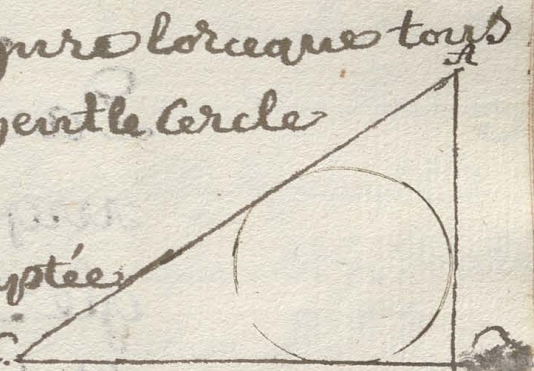 gure lorceque tous
A
gent le Cercle
yptée
C.